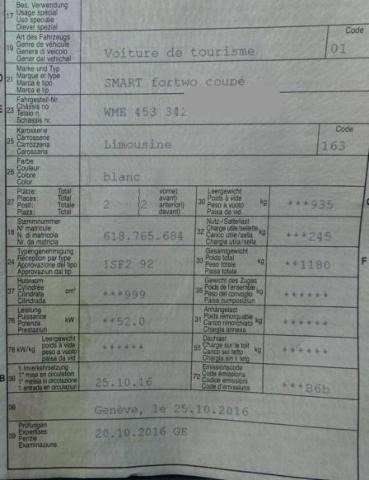 Bes. Verwendung
17 Usage spécial
Uso speciale
Diever spezial
Art des Fahrzeugs
19 Genre de véhicule
Genere di veicolo
Gener dal vehichel
Voiture de tourisme
Code
01
Marke und Typ
21 Marque et type
Marca e tipo
Marca e tip
SMART fortwo coupe
Fahrgestell-Nr.
23 Châssis no
Telaio n.
Schassis nr.
WME 453 342
Karosserie
25 Carrosserie
Carrozzeria
Carossaria
Limousine
Code
163
Farbe
26 Couleur
Colore
Colur
blanc
Plätze: Total vorne)
27 Places: Total avant)
Posti: Totale anteriori)
Plazs: Total davant)
2 (2
Leergewicht
30 Poids à vide kg
Peso a vuoto
Paisa da vid
***935
Stammnummer
18 N° matricule
N. di matricola
Nr. da matricla
618.765.684
Nutz-/Sattellast
32 Charge utile/sellette kg
Carico utile/sella
Chargia utila/sella
***245
Typengenehmigung
24 Réception par type
Approvazione del tipo
Approvaziun dal tip
1SF2 92
Gesamtgewicht
33 Poids total kg
Peso totale
Paisa totala
**1180
Hubraum
37 Cylindrée cm³
Cilindrata
Cilindrada
***999
Gewicht des Zuges
35 Poids de l'ensemble kg
Peso del convoglio
Paisa cumposiziun
******
Leistung
76 Puissance kW
Potenza
Prestaziun
**52.0
Anhängelast
31 Poids remorquable kg
Carico rimorchiato
Chargia annexa
******
Leergewicht
78 kW/kg poids à vide
peso a vuoto
paisa da vid
******
Dachlast
55 Charge sur le toit kg
Carico sul tetto
Chargia sin il tetg
******
1. Inverkehrsetzung
36 1re mise en circulation
1a messa in circolazione
1. entrada en circulaziun
25.10.16
Emissionscode
72 Code émissions
Codice emissioni
Code d'emissiuns
***B6b
38
Genève, le 25.10.2016
Prüfungen
39 Expertises
Perizie
Examinaziuns
20.10.2016 GE